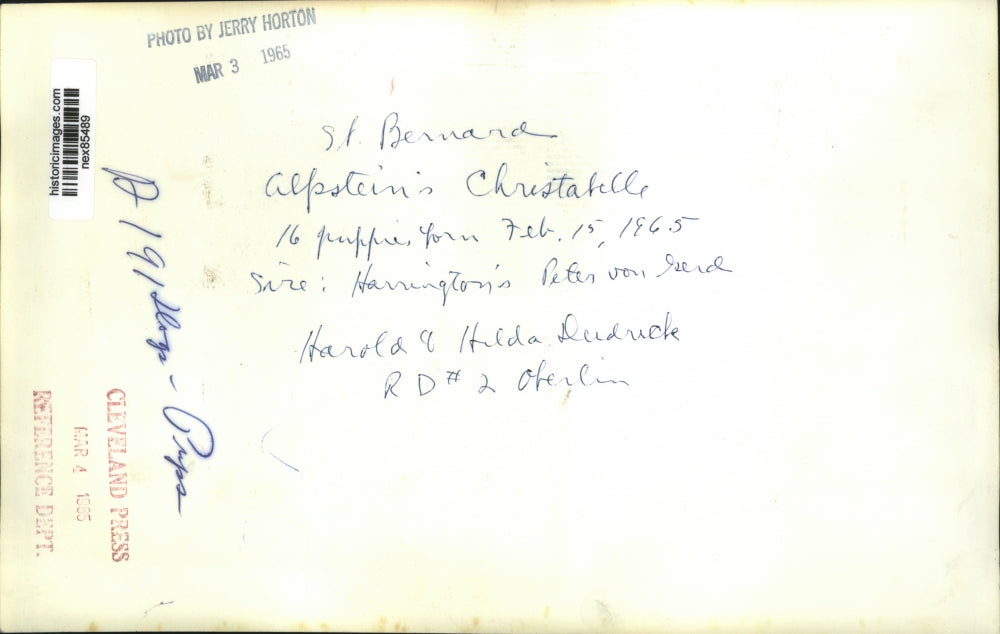 PHOTO BY JERRY HORTON
MAR 3 1965
historicimages.com
nex85489
St. Bernard
Alpstein's Christabelle
16 puppies born Feb. 15, 1965
Sire: Harrington's Peter von Gerd
Harold & Hilda Deidrick
R D # 2 Oberlin
A 191 Dogs - Pups
CLEVELAND PRESS
MAR 4 1965
REFERENCE DEPT.